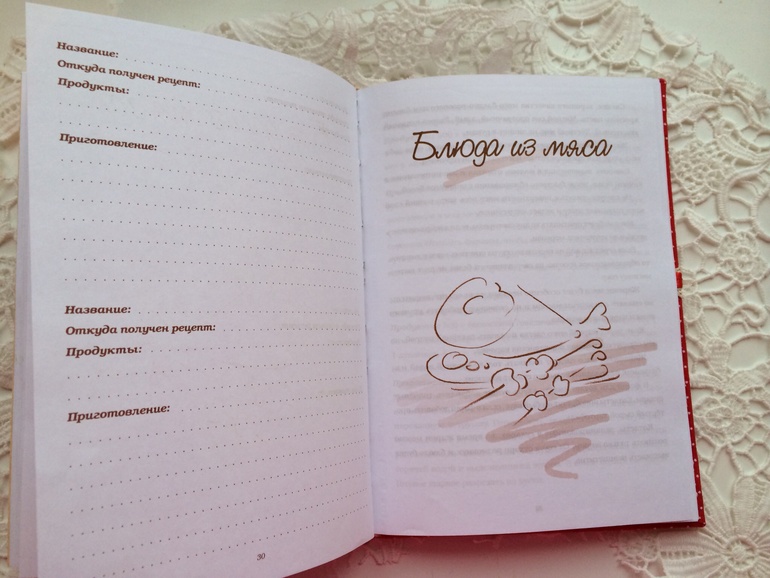 Название:
Откуда получен рецепт:
Продукты:
Приготовление:
Название:
Откуда получен рецепт:
Продукты:
Приготовление:
30
Блюда из мяса